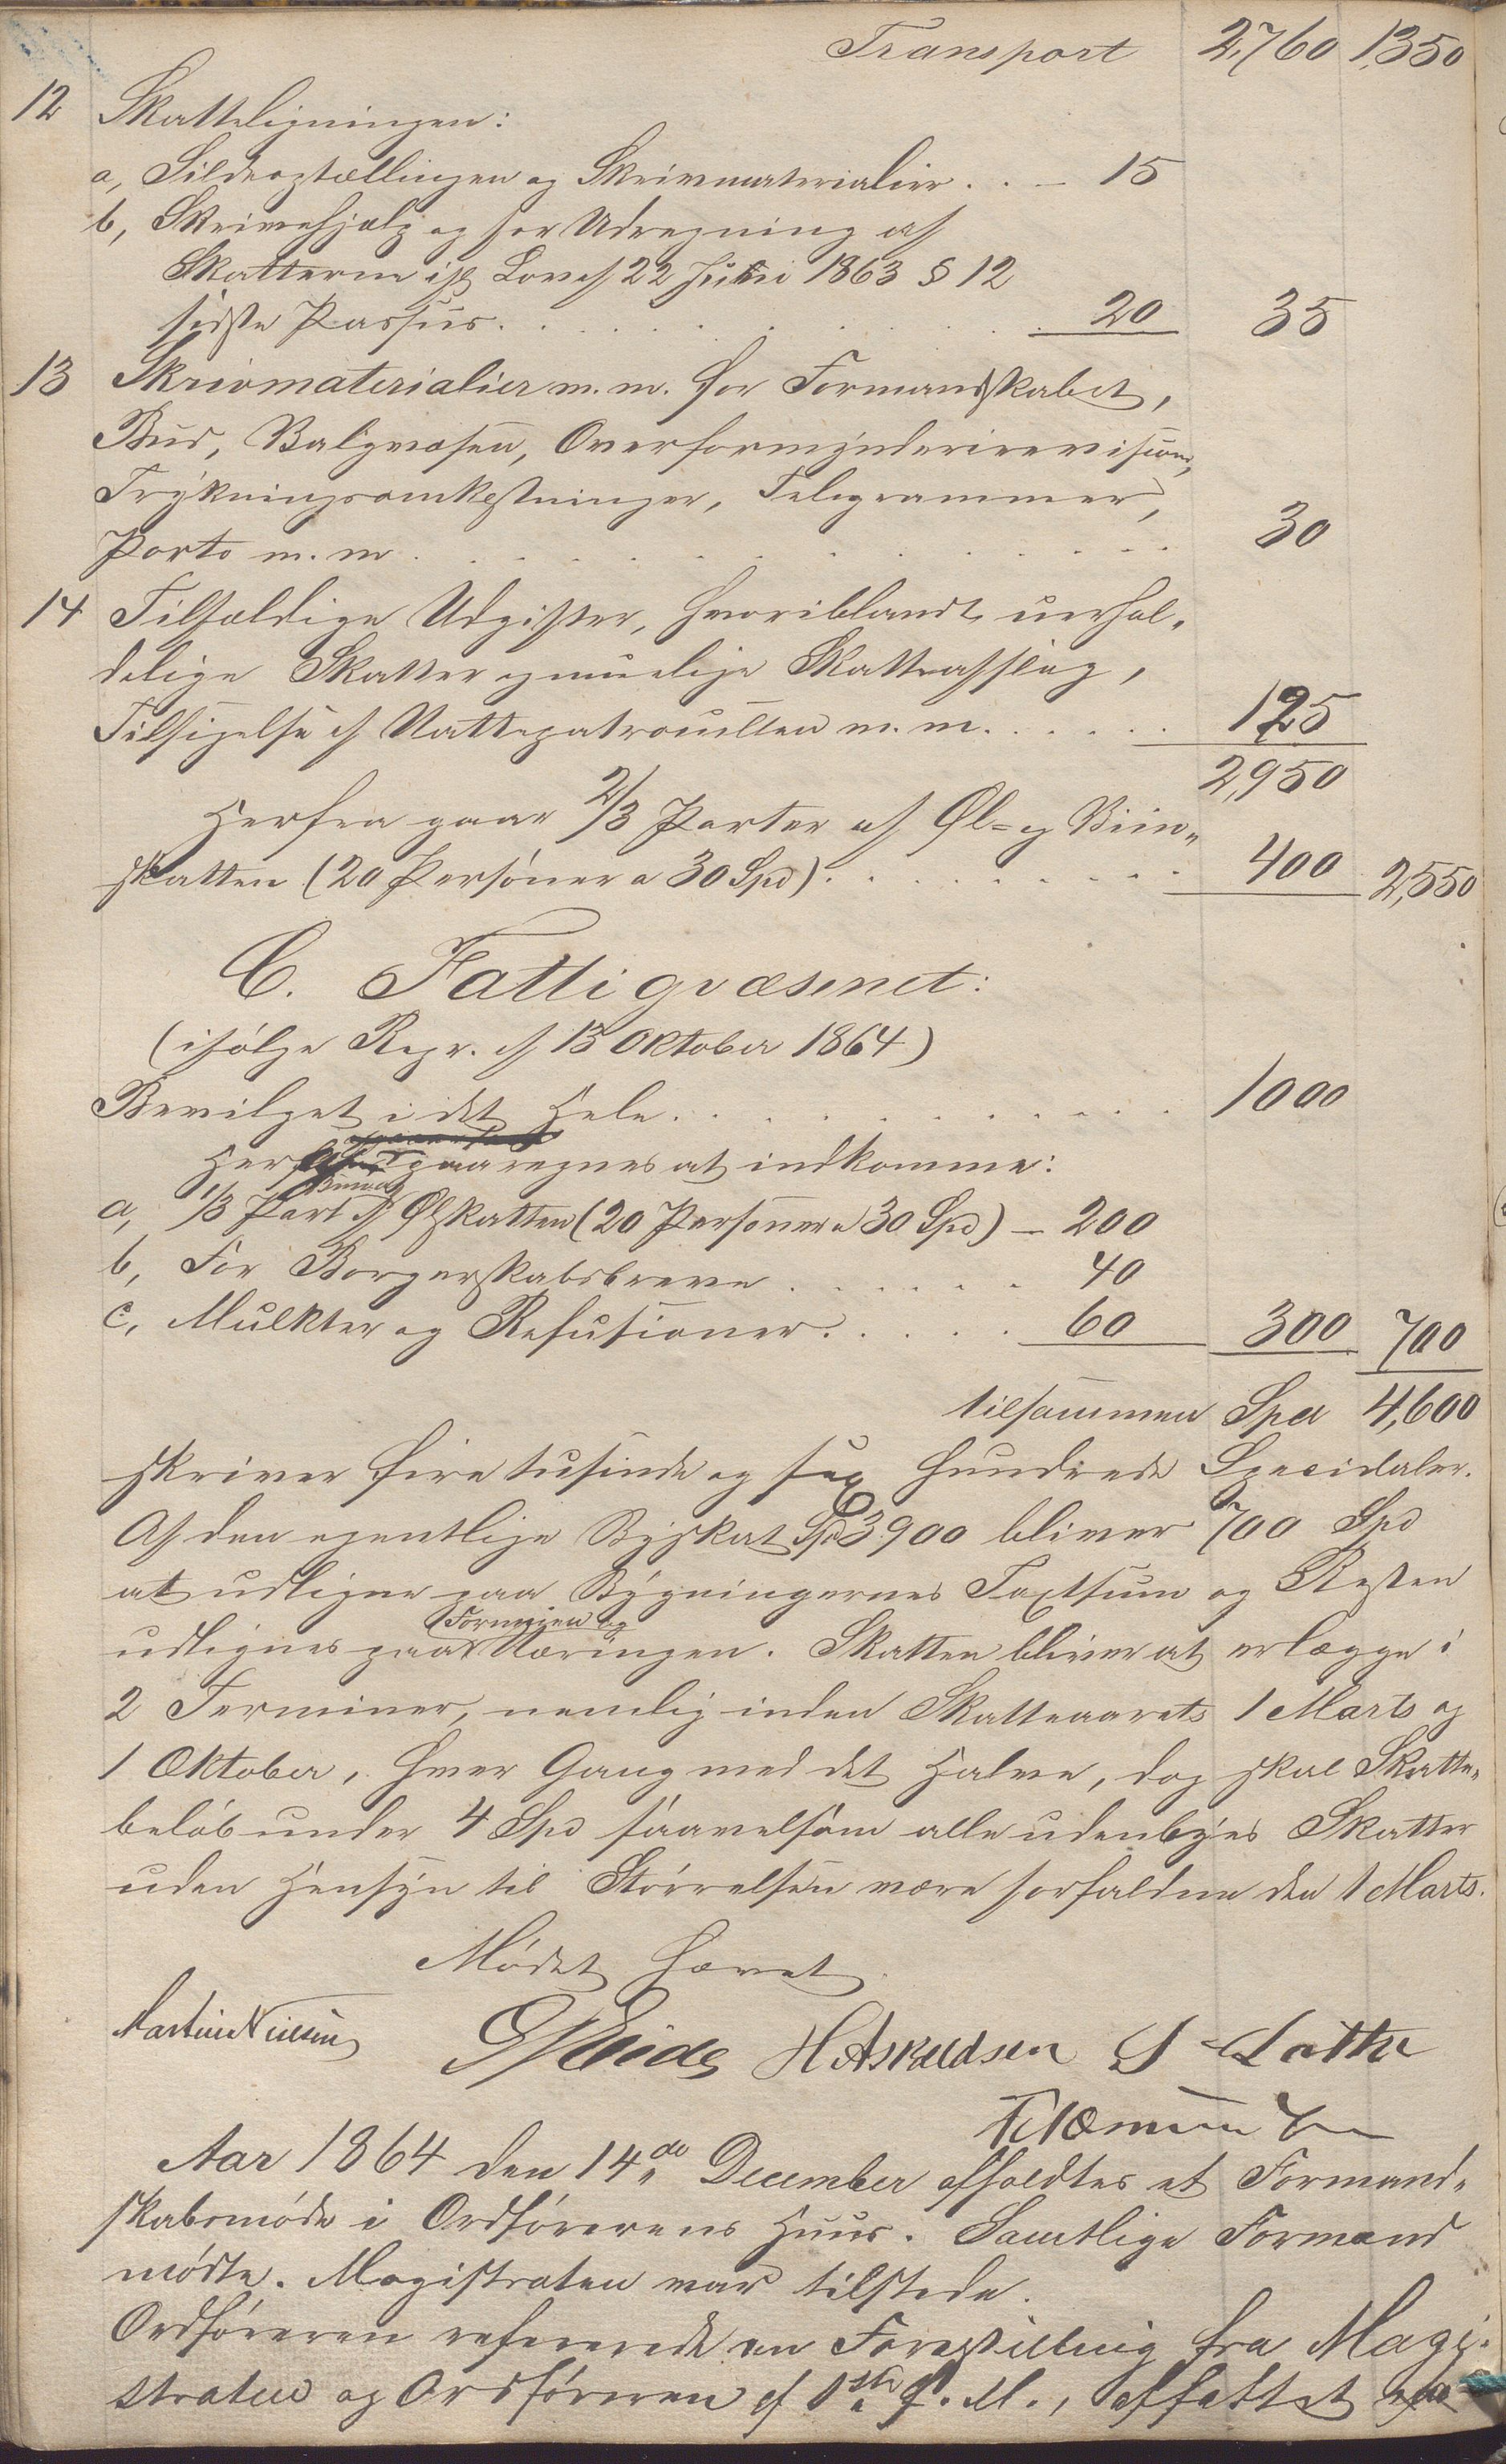 Transport 2,760 1,350
12 Skatteligningen:
a, Sildeoptællingen og Skrivmaterialier . . - 15
b, Skrivehjælp og for Udregning af
Skatterne ifg Lov af 22 Juni 1863 § 12
sidste Passus . . . . . . . . 20 35
13 Skrivmaterialier m.m. for Formandskabet,
Bud, Valgvæsen, Overformynderirevision,
Trykningsomkostninger, Telegrammer,
Porto m.m . . . . . . . . . . . 30
14 Tilfældige Udgifter, hvoriblandt uerhol-
delige Skatter og muelige Skatteafslag,
Tilsigelse af Nattepatrouillen m.m. . . . . . 125
2,950
Herfra gaar 2/3 Parter af Øl- og Viin-
skatten (20 Personer a 30 Spd) . . . . . . . . 400 2,550
C. Fattigvæsenet:
(ifølge Repr. af 13 Oktober 1864)
Bevilget i det Hele . . . . . . . . . . 1000
Her paaregnes at indkomme:
a, 1/3 Part af Ølskatten (20 Personer a 30 Spd) - 200
b, For Borgerskabsbreve . . . . . . 40
c, Mulkter og Refusioner . . . . . 60 300 700
tilsammen Spd 4,600
skriver fire tusinde og sex hundrede Specidaler.
Af den egentlige Byskat Spd 3900 bliver 700 Spd
at udligne paa Bygningernes Taxtsum og Resten
udlignes paa Formuen og Næringen. Skatten bliver at erlægge i
2 Terminer, nemlig inden Skatteaarets 1 Marts og
1 Oktober, hver Gang med det Halve, dog skal Skatte-
beløb under 4 Spd saavelsom alle udenbyes Skatter
uden Hensyn til Størrelsen være forfaldne den 1 Marts.
Mødet hævet
Martin Nielsen G Eide H Askildsen S Lothe
Aar 1864 den 14de December afholdtes et Formand-
skabsmøde i Ordførerens Huus. Samtlige Formænd
mødte. Magistraten var tilstede.
Ordføreren refererede en Forestilling fra Magi-
straten og Ordføreren af 1ste d. M., affattet